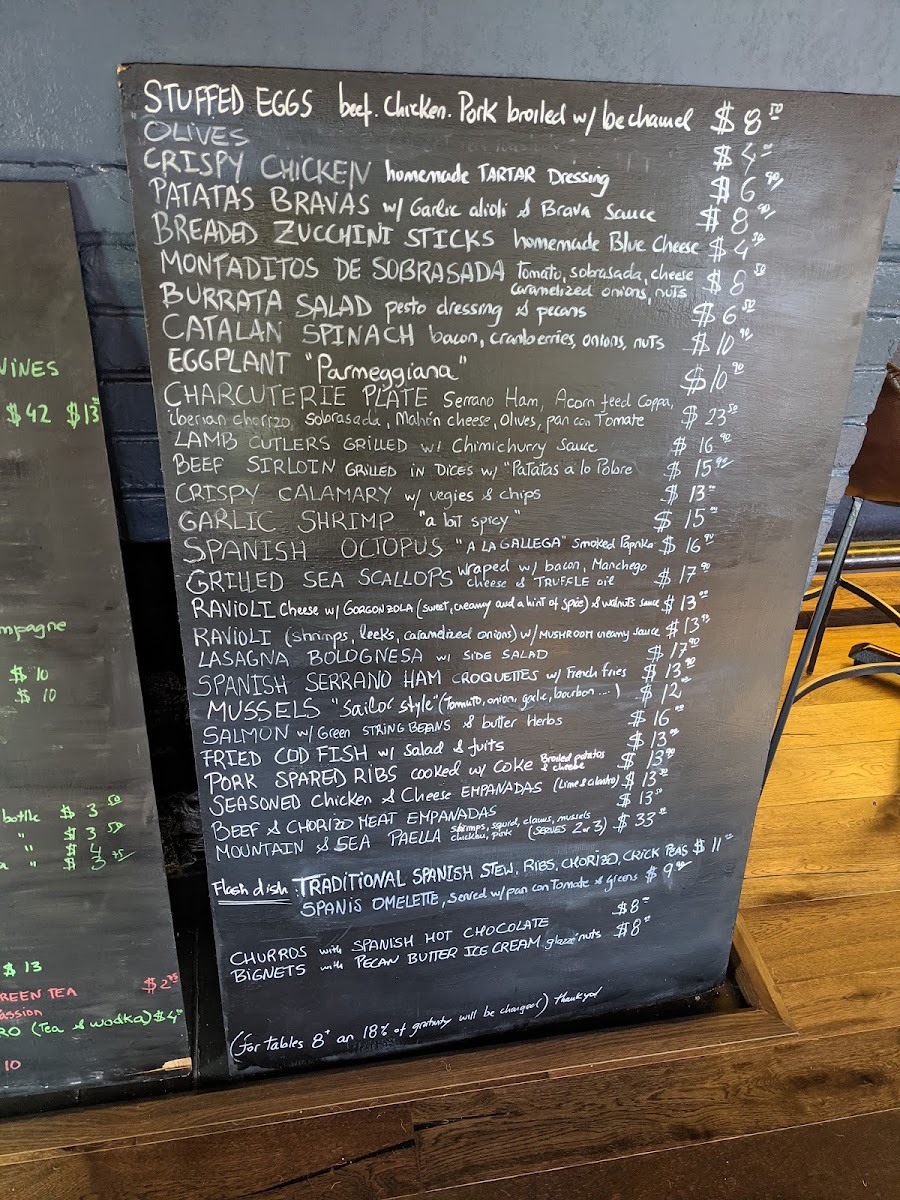 STUFFED EGGS beef. Chicken. Pork broiled w/ bechamel $8.50
OLIVES $4.00
CRISPY CHICKEN homemade TARTAR Dressing $6.90
PATATAS BRAVAS w/ Garlic alioli & Brava Sauce $8.90
BREADED ZUCCHINI STICKS homemade Blue Cheese $4.50
MONTADITOS DE SOBRASADA Tomato, sobrasada, cheese $8.50
caramelized onions, nuts
BURRATA SALAD pesto dressing & pecans $6.50
CATALAN SPINACH bacon, cranberries, onions, nuts $10.90
EGGPLANT "Parmeggiana" $10.90
CHARCUTERIE PLATE Serrano Ham, Acorn feed Coppa,
iberian chorizo, Sobrasada, Mahón cheese, Olives, pan con Tomate $23.50
LAMB CUTLERS GRILLED w/ Chimichurry Sauce $16.90
BEEF SIRLOIN GRILLED IN DICES w/ "Patatas a lo Pobre $15.95
CRISPY CALAMARY w/ vegies & chips $13
GARLIC SHRIMP "a lot spicy" $15
SPANISH OCTOPUS "A LA GALLEGA" Smoked Paprika $16.90
GRILLED SEA SCALLOPS wraped w/ bacon, Manchego $17.90
cheese & TRUFFLE oil
RAVIOLI Cheese w/ GORGONZOLA (sweet, creamy and a hint of spice) & walnuts sauce $13
RAVIOLI (shrimps, leeks, caramelized onions) w/ MUSHROOM creamy sauce $13
LASAGNA BOLOGNESA w/ SIDE SALAD $17.90
SPANISH SERRANO HAM CROQUETTES w/ French fries $13.90
MUSSELS "Sailor Style" (Tomato, onion, garlic, bourbon ...) $12
SALMON w/ Green STRING BEANS & butter Herbs $16
FRIED COD FISH w/ Salad & fuits $13
PORK SPARED RIBS cooked w/ Coke Broiled potatos $13.90
& cheese
SEASONED Chicken & Cheese EMPANADAS (Lime & cilantro) $13
BEEF & CHORIZO MEAT EMPANADAS $13
MOUNTAIN & SEA PAELLA shrimps, squid, clams, mussels (SERVES 2 or 3) $33
chicken, pork
Flash dish: TRADITIONAL SPANISH STEW, RIBS, CHORIZO, CHICK PEAS $11
SPANIS OMELETTE, served w/ pan con Tomate & greens $9
CHURROS with SPANISH HOT CHOCOLATE $8
BIGNETS with PECAN BUTTER ICE CREAM glazze nuts $8
(for tables 8+ an 18% of gratuity will be charged) thank you
WINES
$42 $13
mpagne
$10
$10
bottle $3.50
" $3.50
" $4
a " $3.75
$13
REEN TEA $2.75
assion
RO (Tea & wodka) $4
10